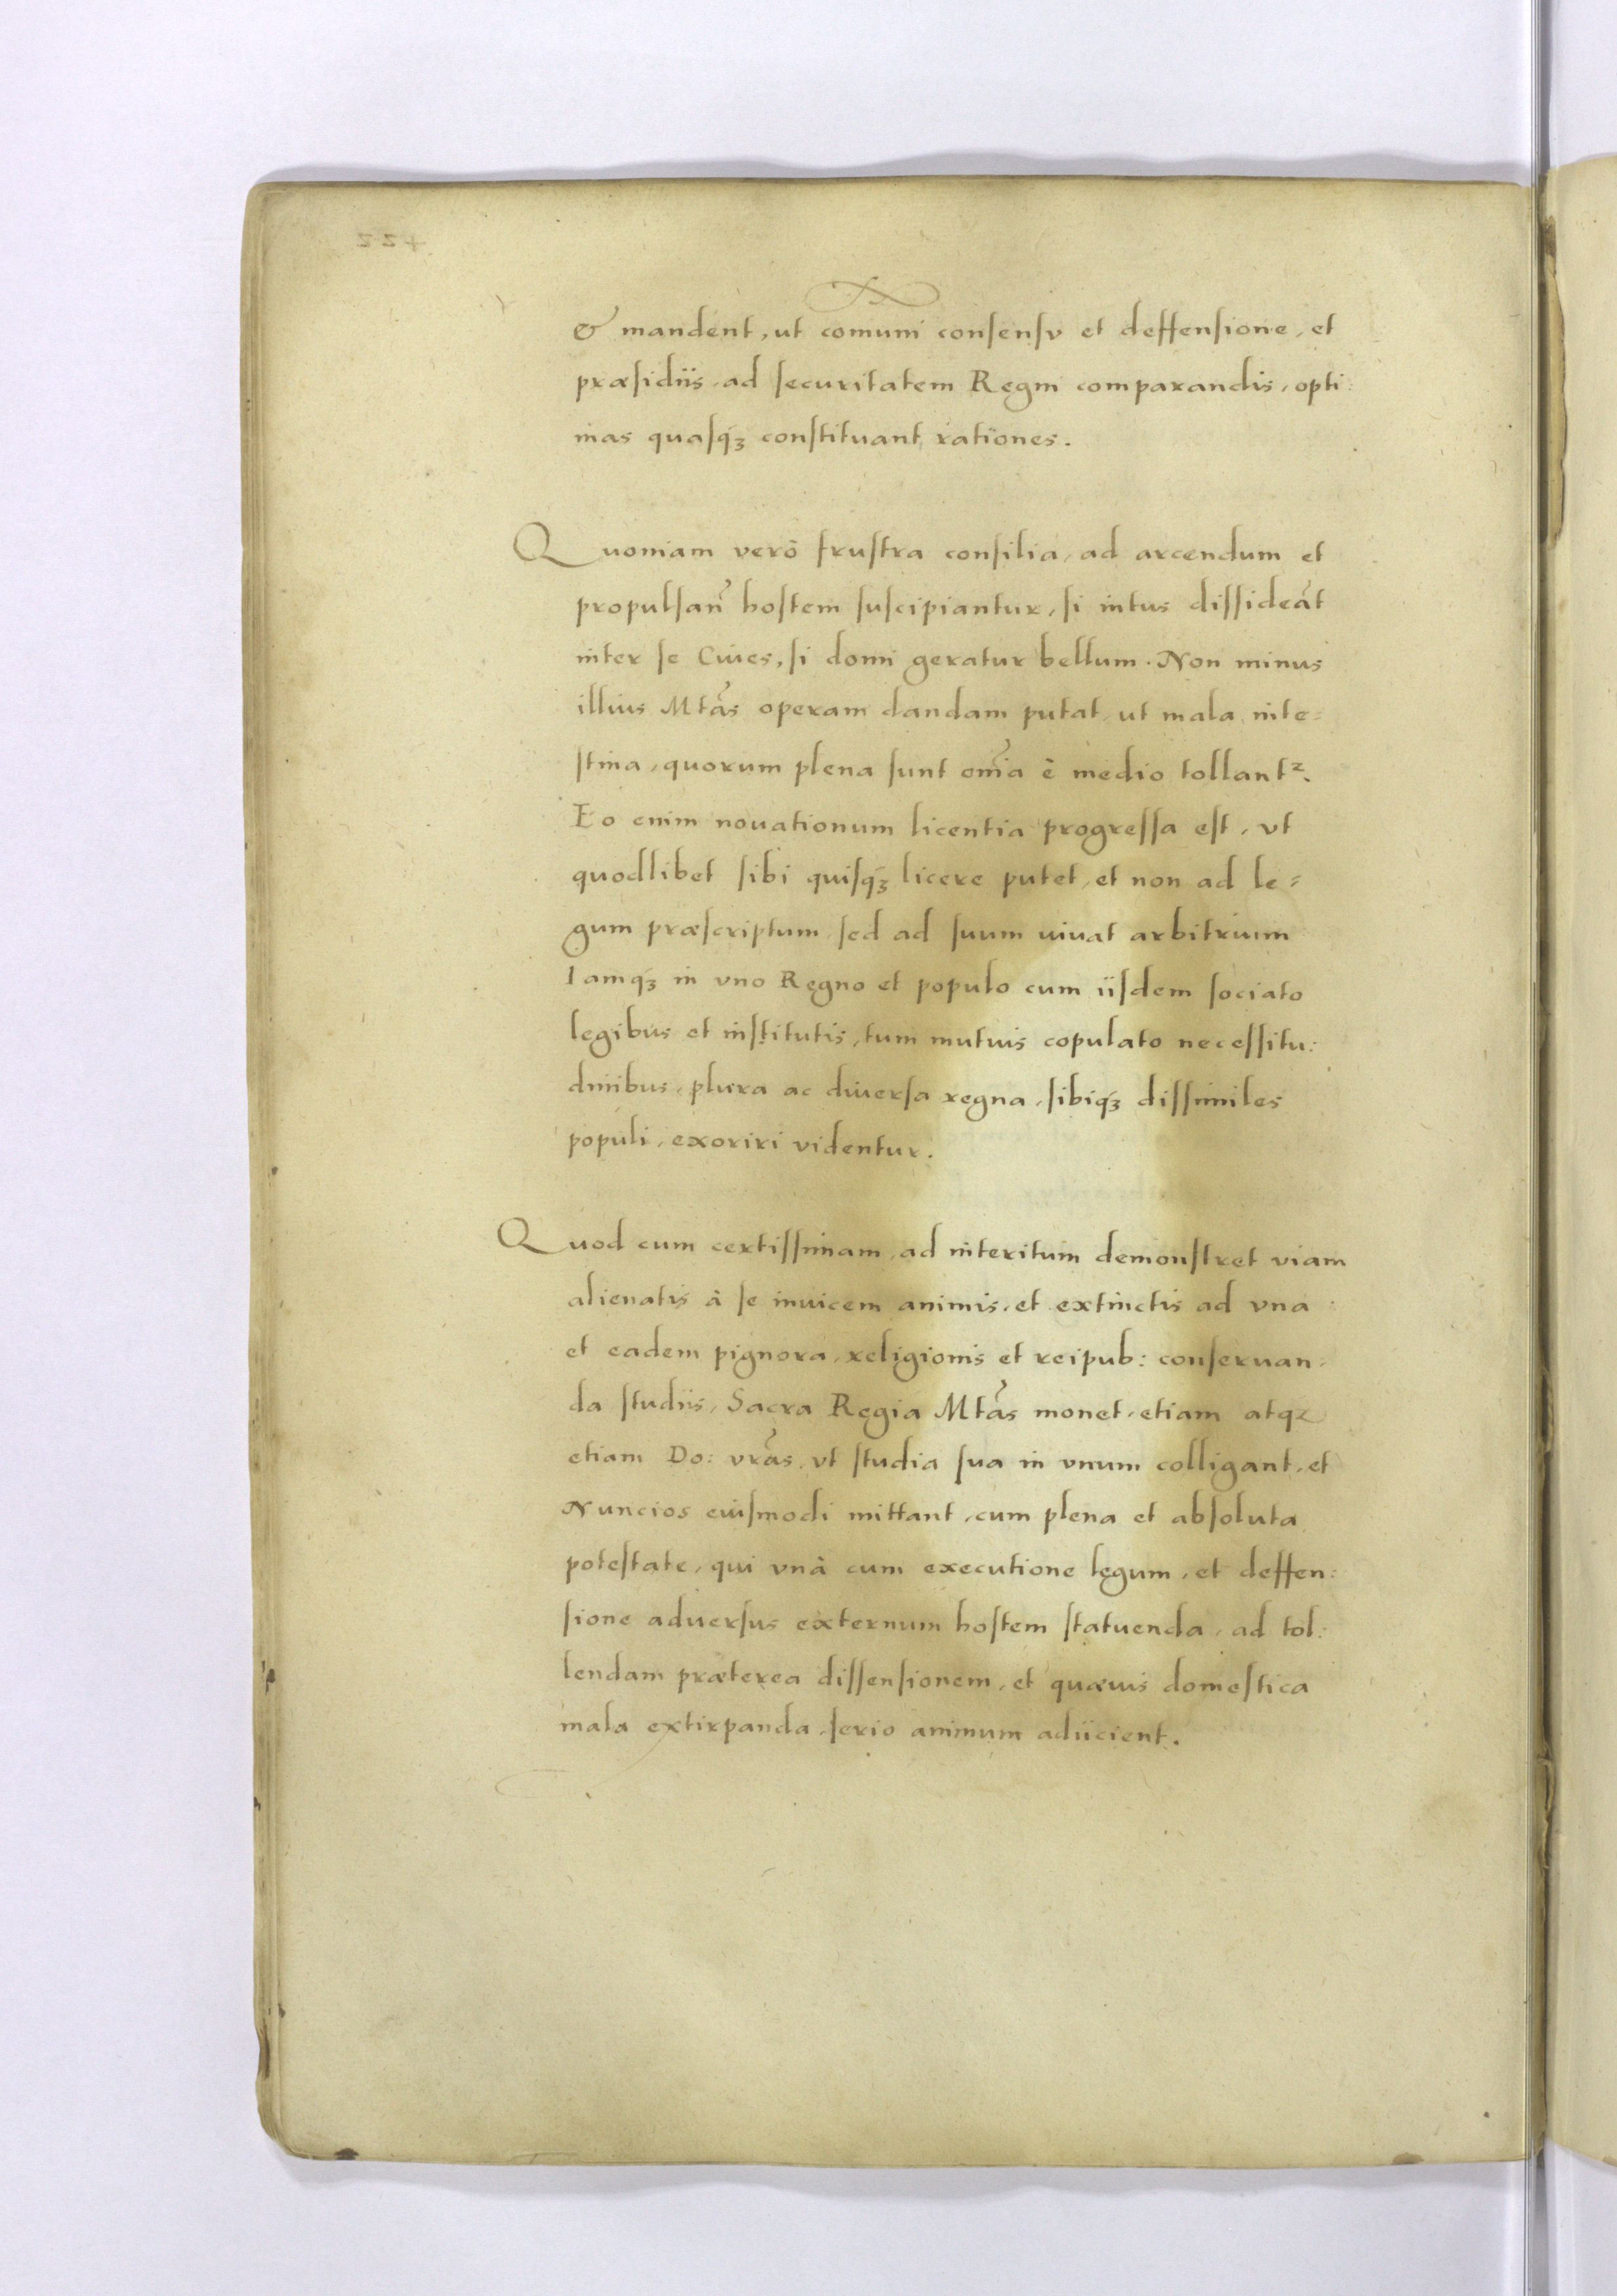 & mandent, ut comuni consensv et deffensione, et
præsidiis, ad securitatem Regni comparandis, opti:
mas quasq́ꝫ constituant rationes.
Quoniam verò frustra consilia, ad arcendum et
propulsañ hostem suscipiantur, si intus dissideãt
inter se Ciues, si domi geratur bellum. Non minus
illius Mtãs operam dandam putat, ut mala inte=
stina, quorum plena sunt om̃ia è medio tollantᷣ.
Eo enim nouationum licentia progressa est, vt
quodlibet sibi quisq́ꝫ licere putet, et non ad le=
gum præscriptum, sed ad suum uiuat arbitrium
Iamq́ꝫ in vno Regno et populo cum iisdem sociato
legibus et institutis, tum mutuis copulato necessitu:
dinibus, plura ac diuersa regna, sibiq́ꝫ dissimiles
populi, exoriri videntur.
Quod cum certissimam, ad interitum demonstret viam
alienatis à se inuicem animis, et extinctis ad vna
et eadem pignora, religionis et reipub: conseruan,
da studiis, Sacra Regia Mtãs monet, etiam atqꝫ
etiam Do: vrãs, vt studia sua in vnum colligant, et
Nuncios eiusmodi mittant, cum plena et absoluta
potestate, qui vnà cum executione legum, et deffen:
sione aduersus externum hostem statuenda, ad tol:
lendam præterea dissensionem, et quæuis domestica
mala extirpanda, serio animum adiicient.